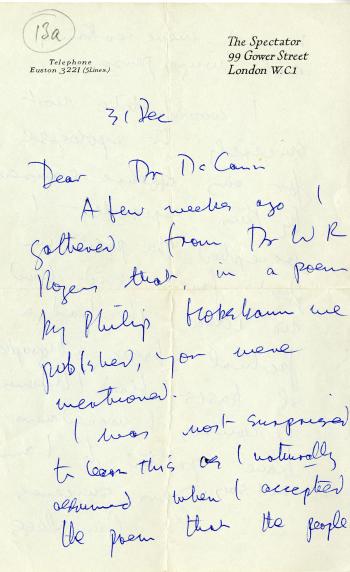 13a
The Spectator
99 Gower Street
London W.C.1
Telephone
Euston 3221 (5 Lines.)
31 Dec
Dear Dr McCann
A few weeks ago I
gathered from Dr W R
Rogers that, in a poem
by Philip Hobsbaum we
published, you were
mentioned.
I was most surprised
to learn this as I naturally
assumed when I accepted
the poem that the people